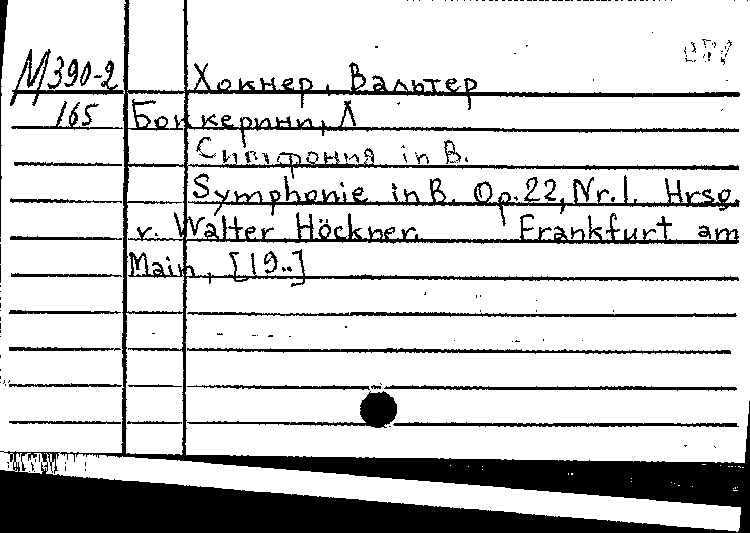 М390-2 Хокнер, Вальтер
165 Боккерини, Л
Симфония in B.
Symphonie in B. Op. 22, Nr. 1. Hrsg.
v. Walter Höckner. Frankfurt am
Main, [19..]